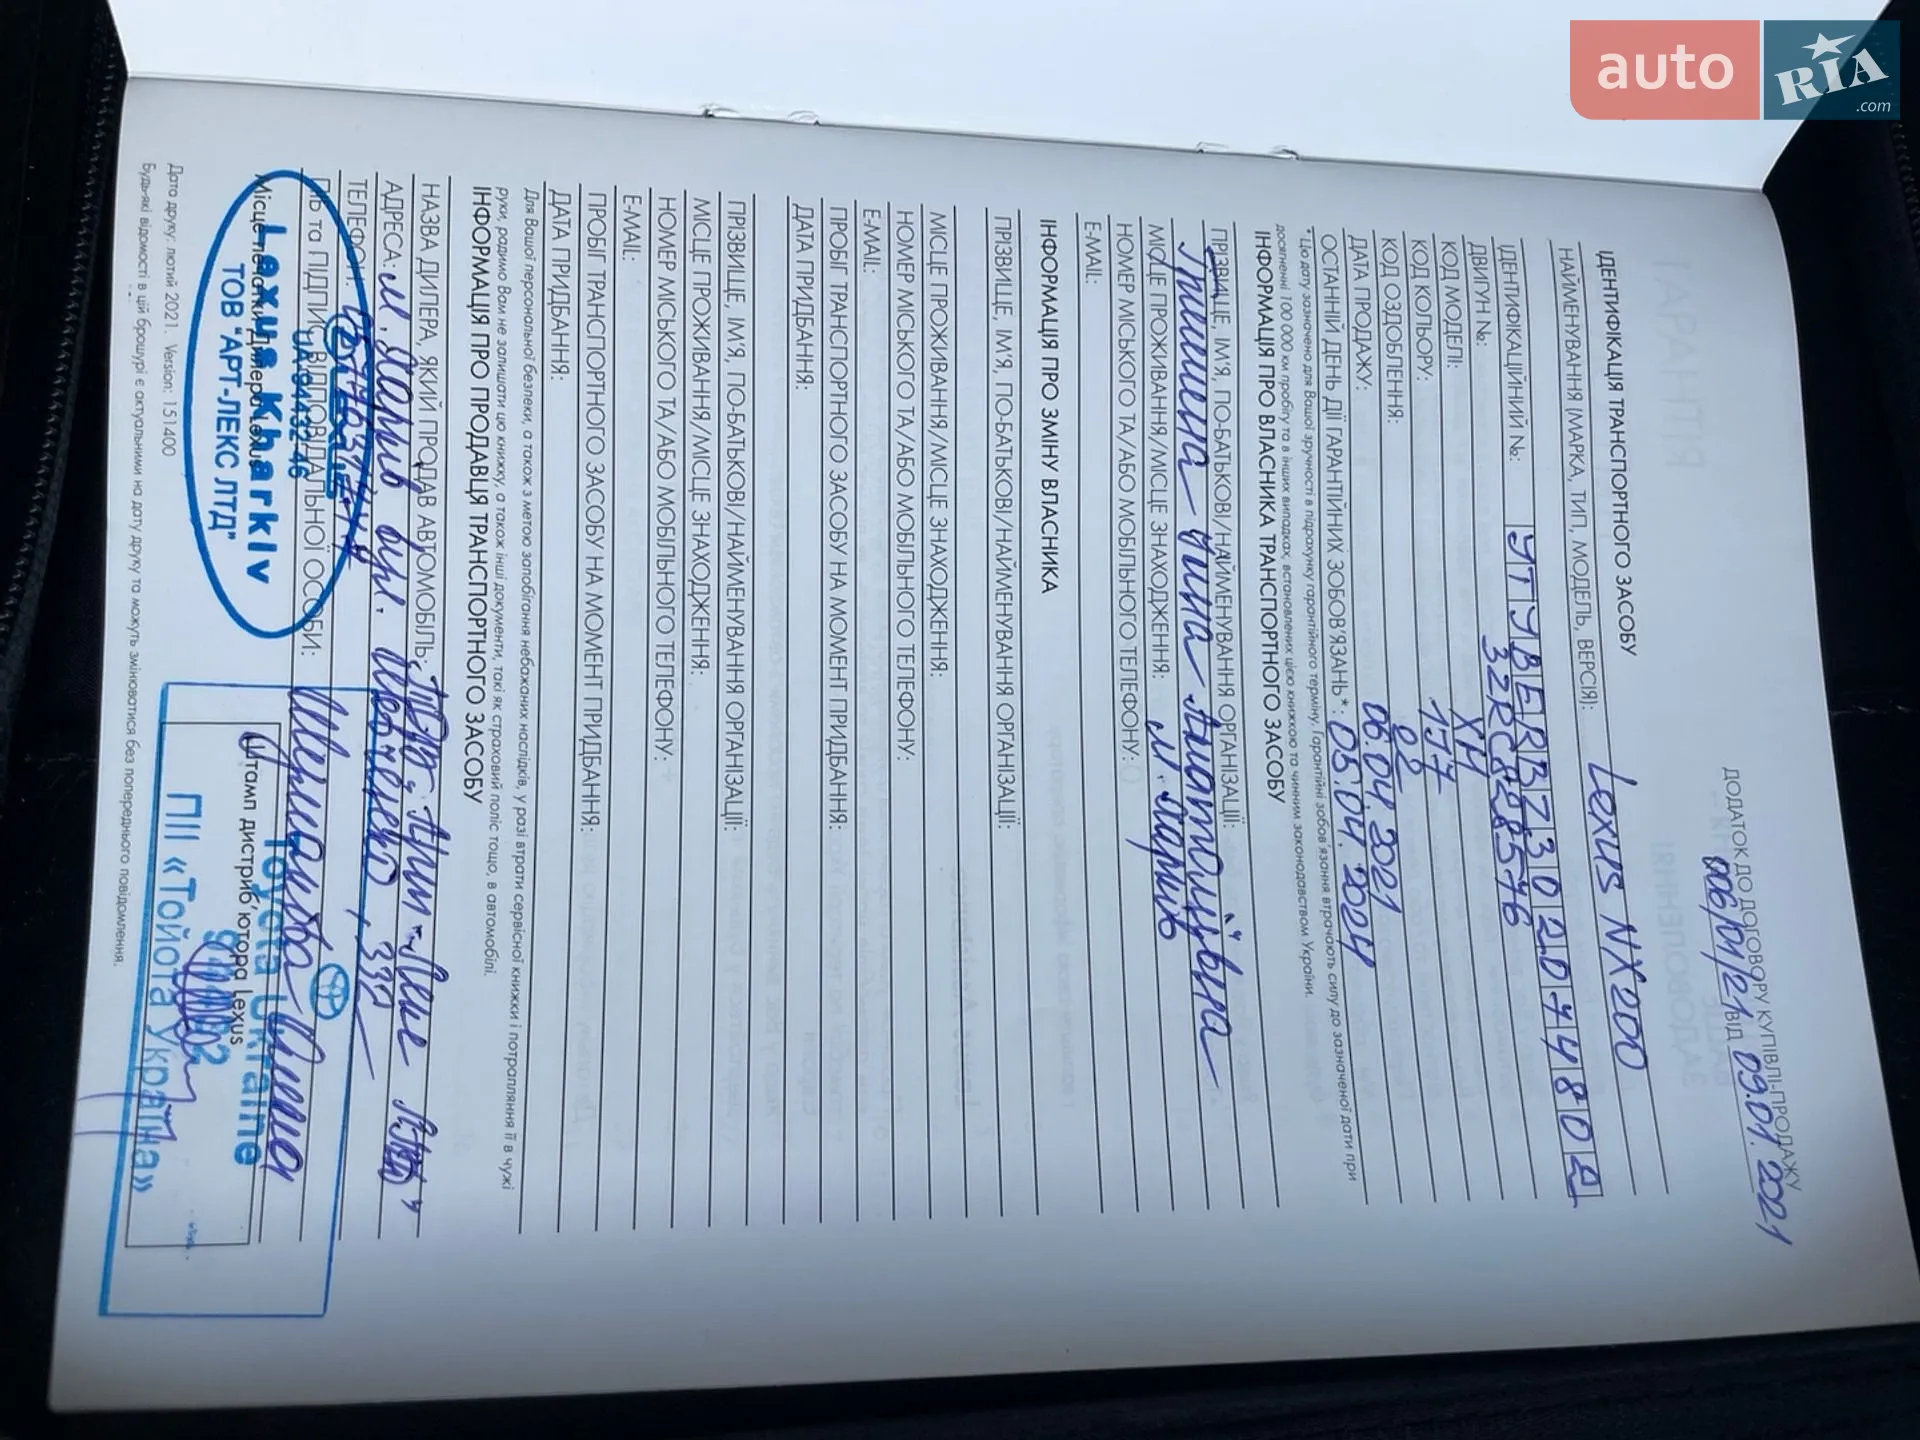 auto
RIA
.com
ДОДАТОК ДО ДОГОВОРУ КУПІВЛІ-ПРОДАЖУ
006/01/21 ВІД 09.01.2021
ІДЕНТИФІКАЦІЯ ТРАНСПОРТНОГО ЗАСОБУ
Lexus NX200
НАЙМЕНУВАННЯ (МАРКА, ТИП, МОДЕЛЬ, ВЕРСІЯ):
ІДЕНТИФІКАЦІЙНИЙ №:
ДВИГУН №: 3ZRC828576
КОД МОДЕЛІ: XH
КОД КОЛЬОРУ: 1J7
КОД ОЗДОБЛЕННЯ:
ДАТА ПРОДАЖУ: 06.04.2021
ОСТАННІЙ ДЕНЬ ДІЇ ГАРАНТІЙНИХ ЗОБОВ'ЯЗАНЬ*: 05.04.2024
*Цю дату зазначено для Вашої зручності в підрахунку гарантійного терміну. Гарантійні зобов'язання втрачають силу до зазначеної дати при
досягненні 100 000 км пробігу та в інших випадках, встановлених цією книжкою та чинним законодавством України.
ІНФОРМАЦІЯ ПРО ВЛАСНИКА ТРАНСПОРТНОГО ЗАСОБУ
ПРІЗВИЩЕ, ІМ'Я, ПО-БАТЬКОВІ/НАЙМЕНУВАННЯ ОРГАНІЗАЦІЇ:
Анатоліївна
МІСЦЕ ПРОЖИВАННЯ/МІСЦЕ ЗНАХОДЖЕННЯ: м. Харків
НОМЕР МІСЬКОГО ТА/АБО МОБІЛЬНОГО ТЕЛЕФОНУ:
E-MAIL:
ІНФОРМАЦІЯ ПРО ЗМІНУ ВЛАСНИКА
ПРІЗВИЩЕ, ІМ'Я, ПО-БАТЬКОВІ/НАЙМЕНУВАННЯ ОРГАНІЗАЦІЇ:
МІСЦЕ ПРОЖИВАННЯ/МІСЦЕ ЗНАХОДЖЕННЯ:
НОМЕР МІСЬКОГО ТА/АБО МОБІЛЬНОГО ТЕЛЕФОНУ:
E-MAIL:
ПРОБІГ ТРАНСПОРТНОГО ЗАСОБУ НА МОМЕНТ ПРИДБАННЯ:
ДАТА ПРИДБАННЯ:
ПРІЗВИЩЕ, ІМ'Я, ПО-БАТЬКОВІ/НАЙМЕНУВАННЯ ОРГАНІЗАЦІЇ:
МІСЦЕ ПРОЖИВАННЯ/МІСЦЕ ЗНАХОДЖЕННЯ:
НОМЕР МІСЬКОГО ТА/АБО МОБІЛЬНОГО ТЕЛЕФОНУ:
E-MAIL:
ПРОБІГ ТРАНСПОРТНОГО ЗАСОБУ НА МОМЕНТ ПРИДБАННЯ:
ДАТА ПРИДБАННЯ:
Для Вашої персональної безпеки, а також з метою запобігання небажаних наслідків, у разі втрати сервісної книжки і потрапляння її в чужі
руки, радимо Вам не залишати цю книжку, а також інші документи, такі як страховий поліс тощо, в автомобілі.
ІНФОРМАЦІЯ ПРО ПРОДАВЦЯ ТРАНСПОРТНОГО ЗАСОБУ
НАЗВА ДИЛЕРА, ЯКИЙ ПРОДАВ АВТОМОБІЛЬ:
АДРЕСА: м. Харків, вул. Шевченко, 334
ТЕЛЕФОН:
ПІБ та ПІДПИС ВІДПОВІДАЛЬНОЇ ОСОБИ:
Місце печатки Дилера Lexus
Lexus Kharkiv
UA 94A32-46
ТОВ "АРТ-ЛЕКС ЛТД"
Штамп дистриб'ютора Lexus
Toyota Ukraine
ПІІ «Тойота Україна»
Дата друку: лютий 2021. Version: 151400
Будь-які відомості в цій брошурі є актуальними на дату друку та можуть змінюватися без попереднього повідомлення.